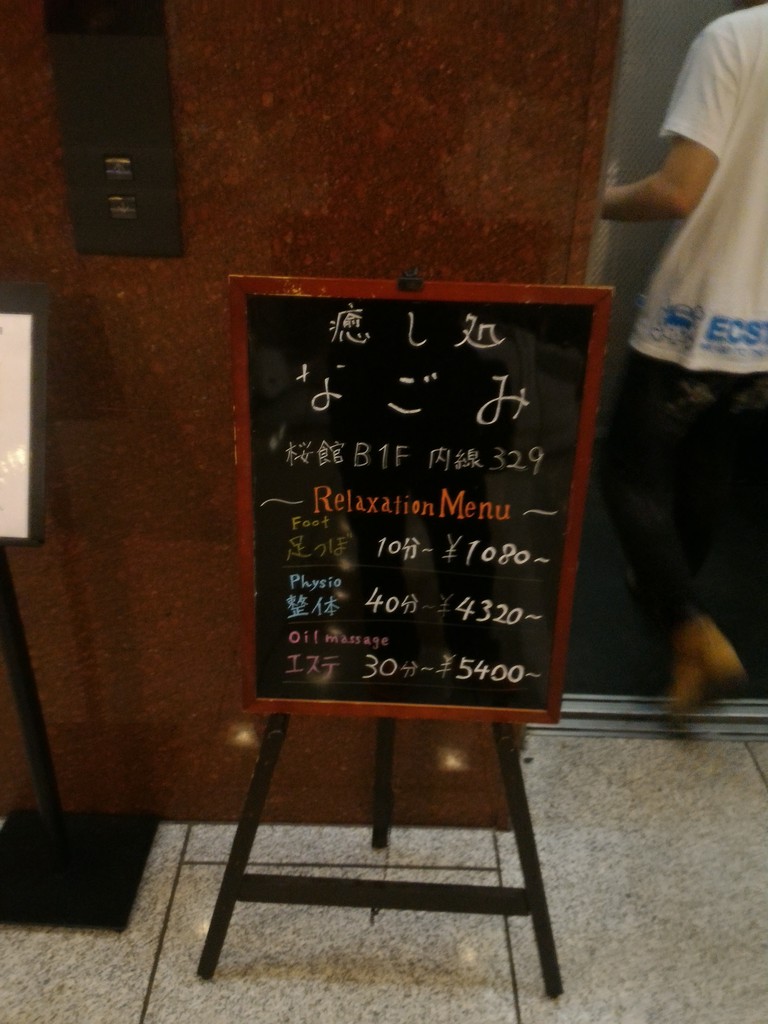 癒し処
なごみ
桜館 B1F 内線 329
〜 Relaxation Menu 〜
Foot
足つぼ 10分~ ¥1080~
Physio
整体 40分~ ¥4320~
Oil massage
エステ 30分~ ¥5400~